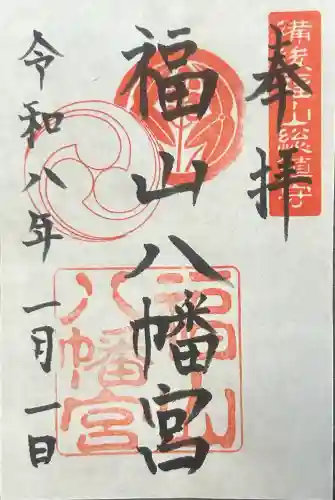 奉拝
備後福山総鎮守
福山八幡宮
福山
八幡宮
令和八年
一月一日